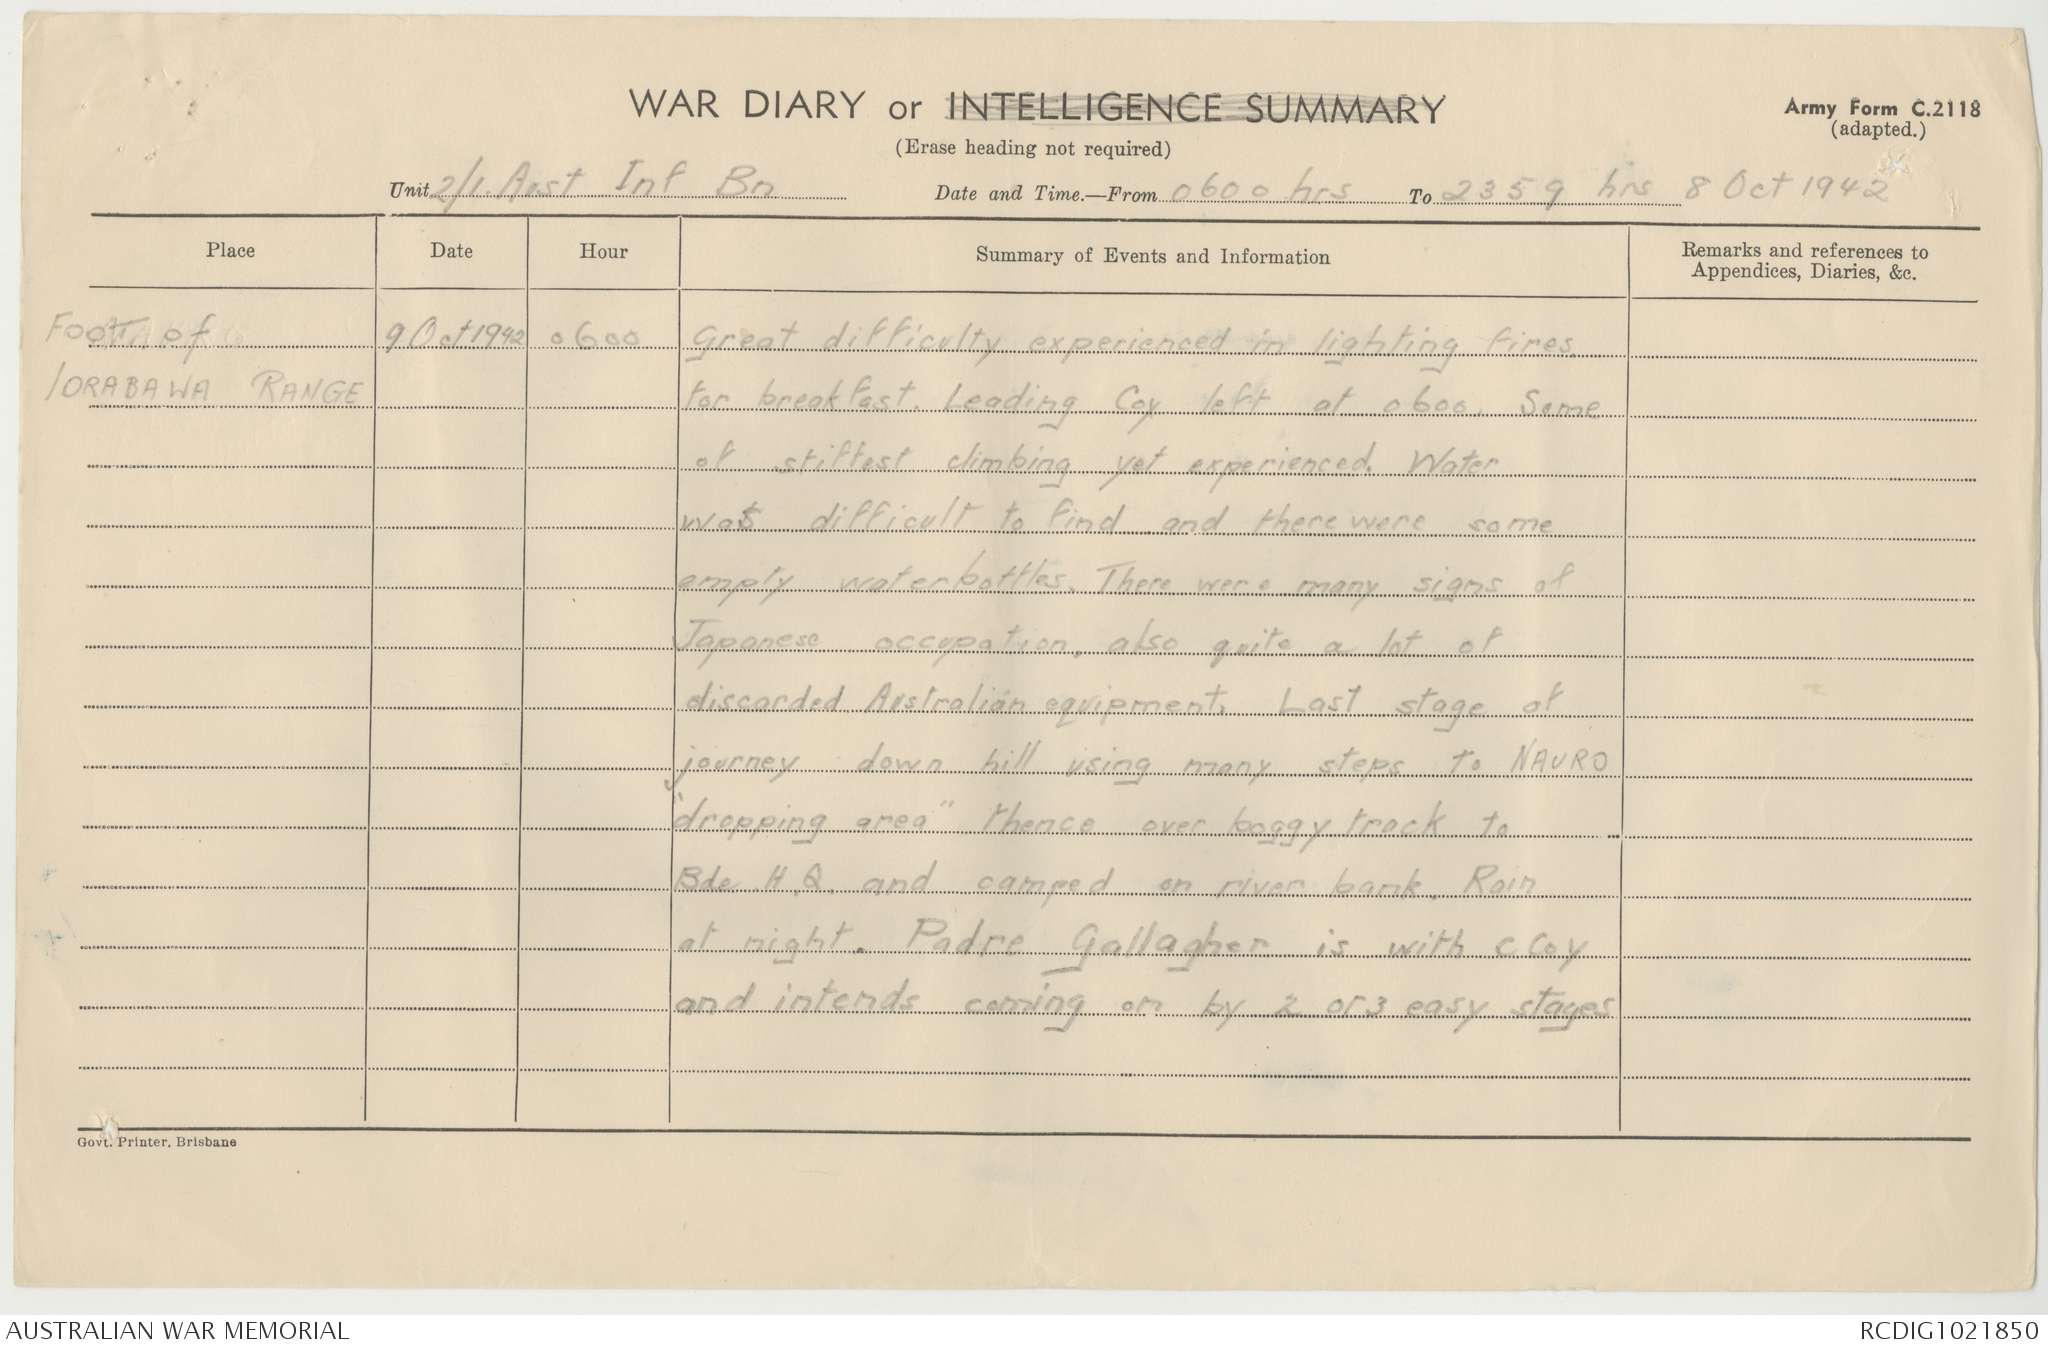 WAR DIARY or INTELLIGENCE SUMMARY
Army Form C.2118
(adapted.)
(Erase heading not required)
Unit 2/1. Aust Inf Bn Date and Time.—From 0600 hrs To 2359 hrs 8 Oct 1942
Place Date Hour Summary of Events and Information Remarks and references to
Appendices, Diaries, &c.
Foot of 9 Oct 1942 0600 Great difficulty experienced in lighting fires
IORABAWA RANGE for breakfast. Leading Coy left at 0600. Some
of stiffest climbing yet experienced. Water
was difficult to find and there were some
empty waterbottles. There were many signs of
Japanese occupation, also quite a lot of
discarded Australian equipment. Last stage of
journey down hill using many steps to NAURO
"dropping area" thence over boggy track to
Bde H.Q. and camped on river bank. Rain
at night. Padre Gallagher is with C Coy
and intends coming on by 2 or 3 easy stages
Govt. Printer, Brisbane
AUSTRALIAN WAR MEMORIAL
RCDIG1021850